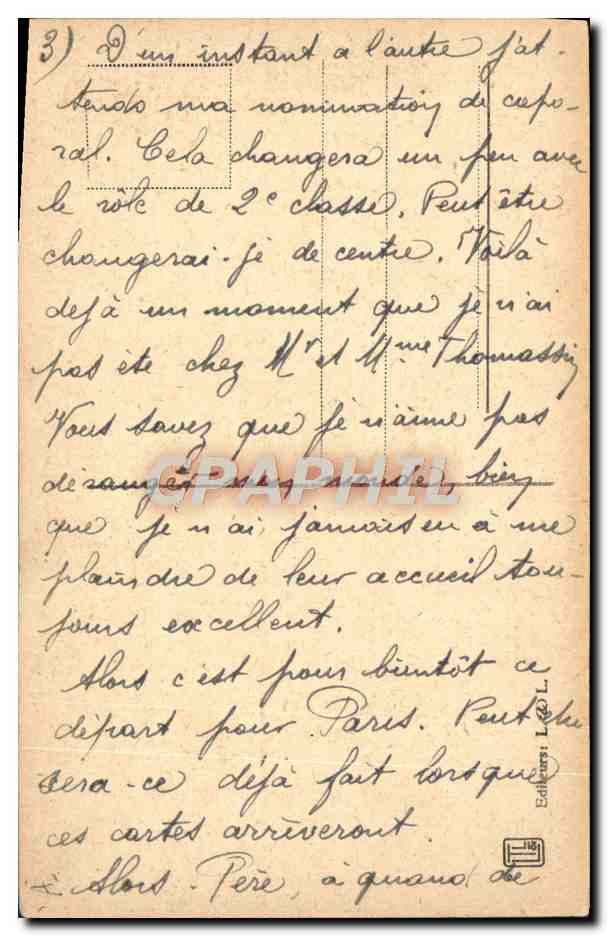 3) D'un instant a l'autre j'at-
tends ma nomination de capo-
ral. Cela changera un peu avec
le rôle de 2e classe. Peut être
changerai-je de centre. Voilà
dejà un moment que je n'ai
pas été chez Mr et Mme Thomassin
Vous savez que je n'aime pas
déranger mon monde, bien
que je n'ai jamais eu à me
plaindre de leur accueil tou-
jours excellent.
Alors c'est pour bientôt ce
départ pour Paris. Peut être
sera-ce déjà fait lorsque
ces cartes arriveront.
Alors Père, à quand de
Editeurs: L. & L.
CPAPHIL